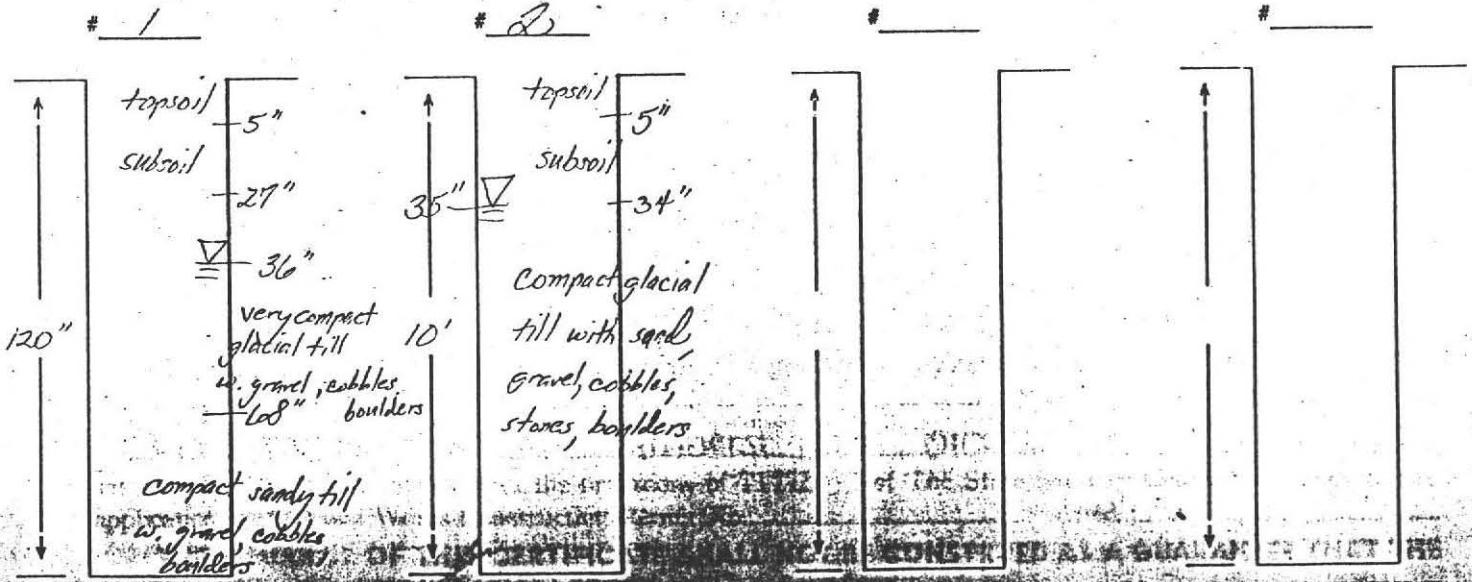 # 1
# 2
#
#
topsoil
5"
subsoil
27"
36"
120"
very compact
glacial till
w. gravel, cobbles
boulders
68"
compact sandy till
w. gravel, cobbles
boulders
topsoil
5"
subsoil
35"
34"
10'
Compact glacial
till with sand,
gravel, cobbles,
stones, boulders